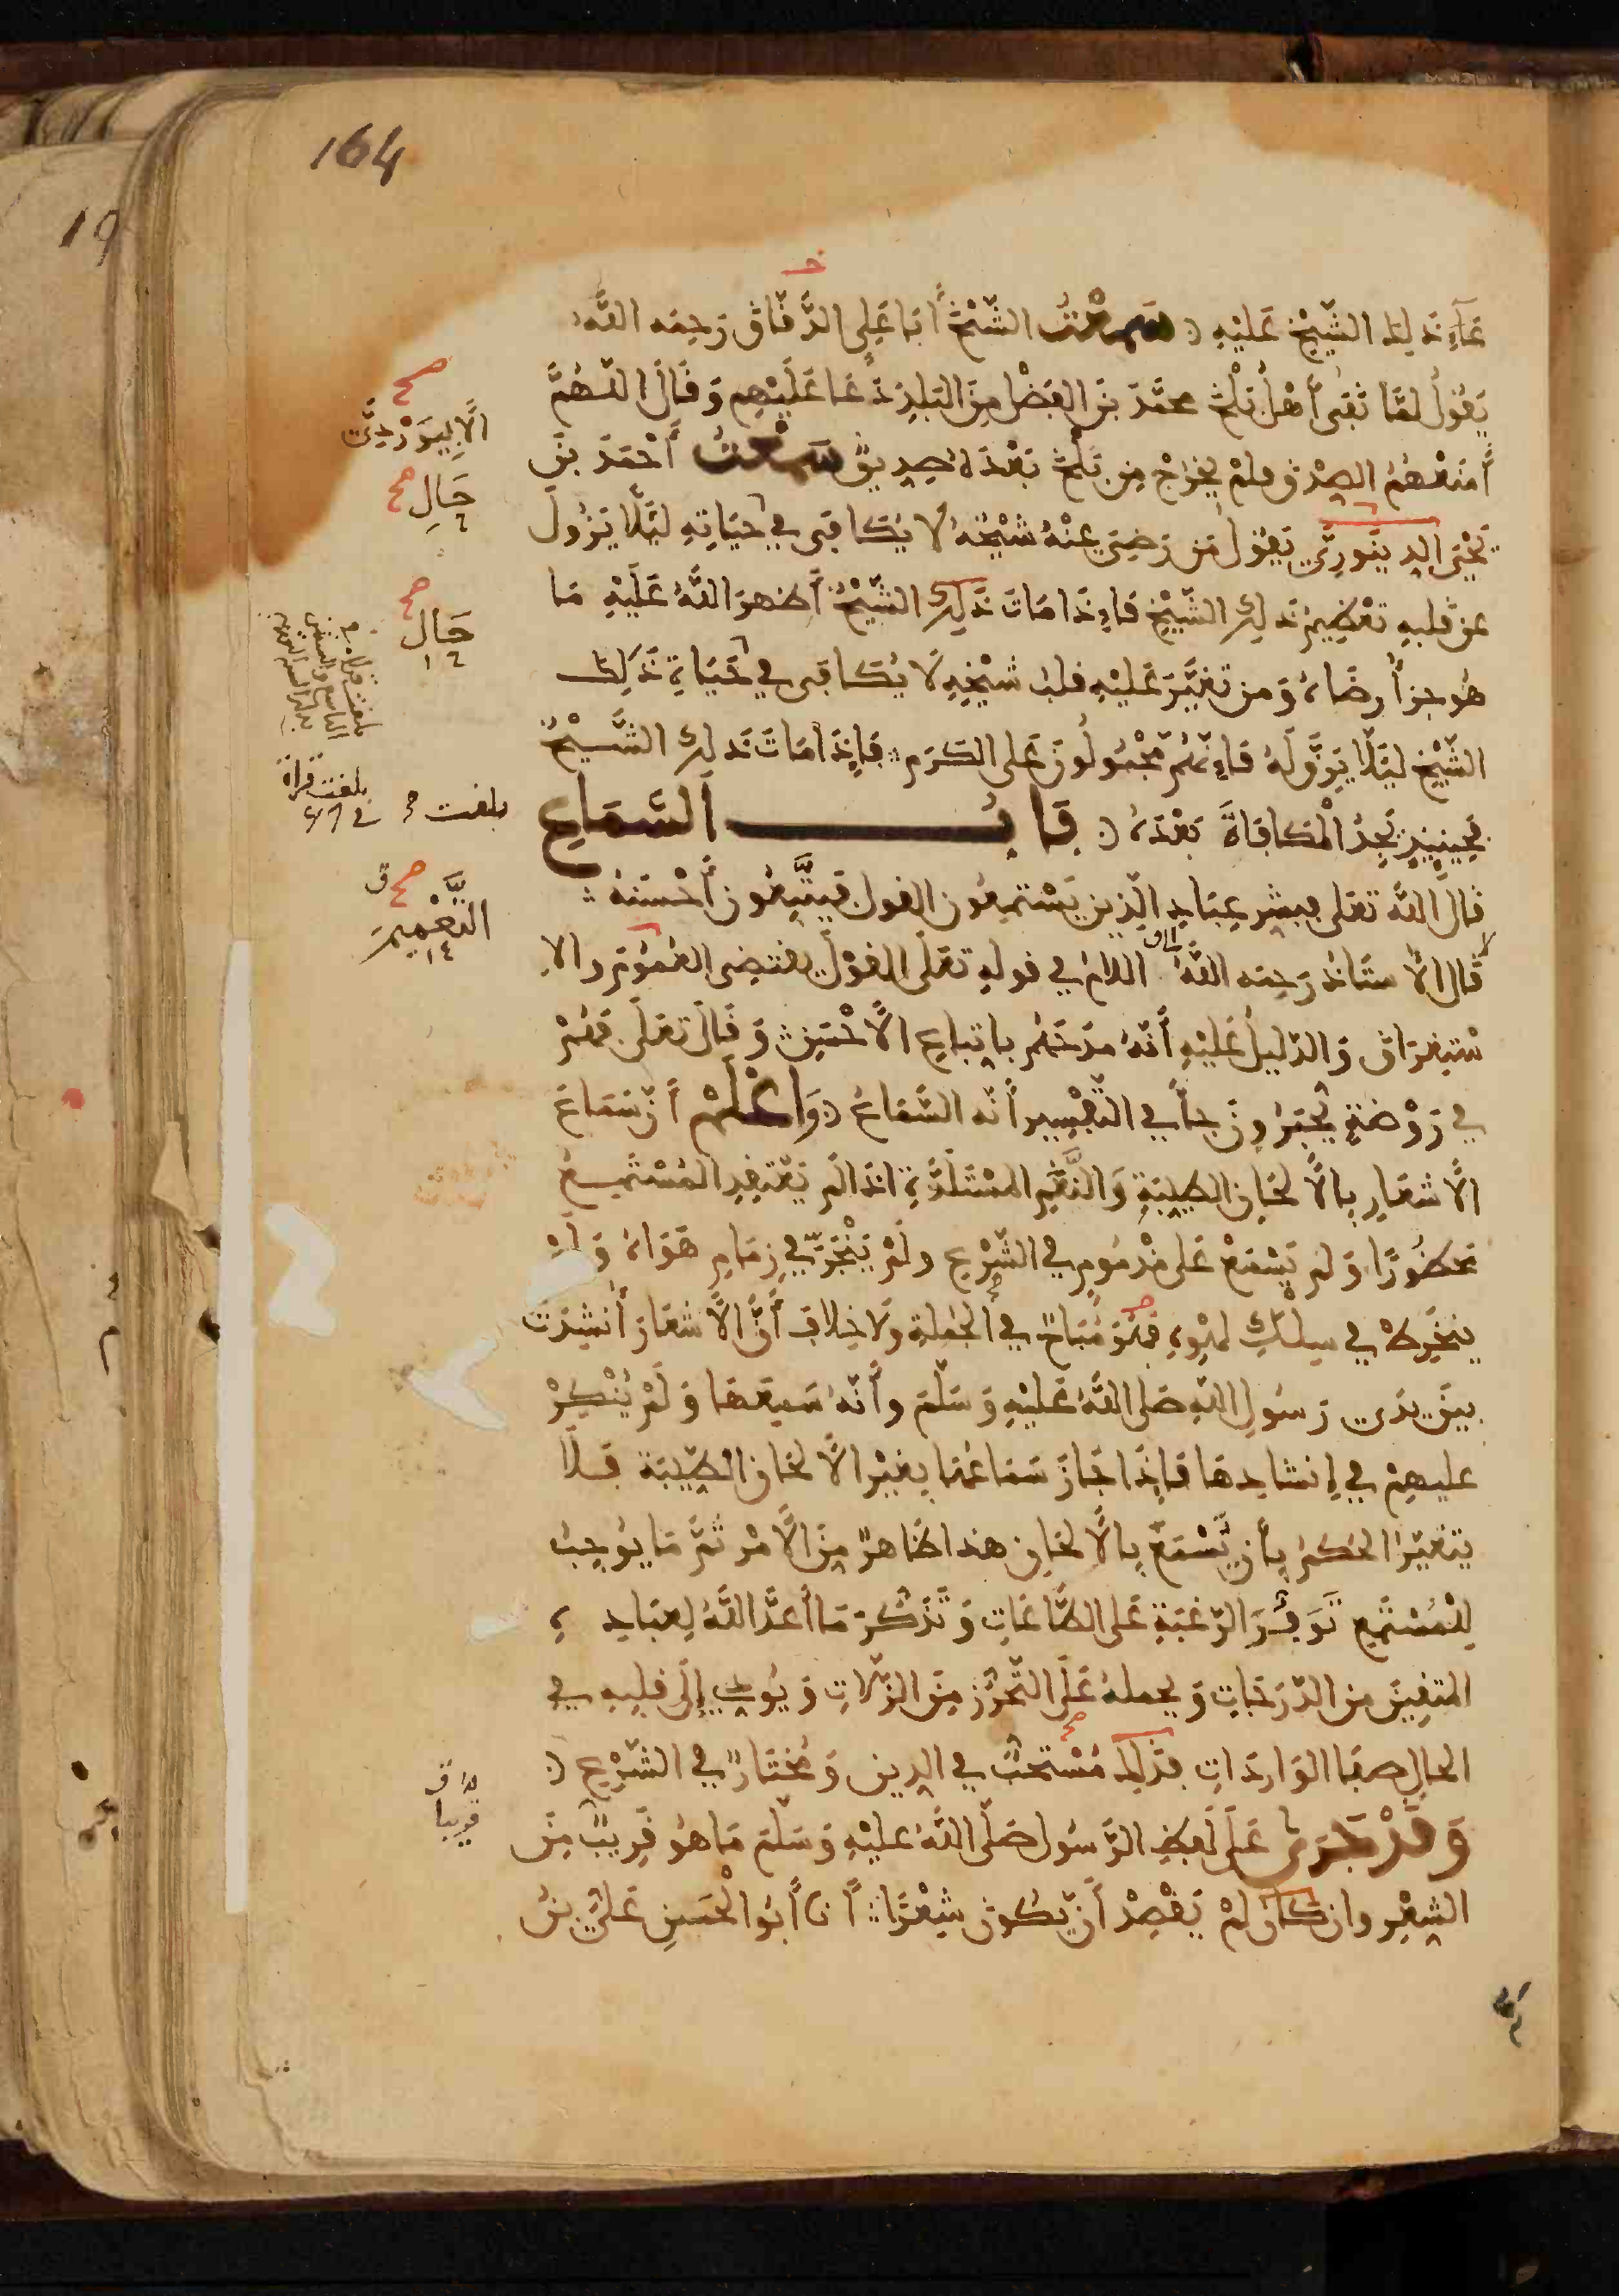 164
19
دعاء ذلك الشيخ عليه سمعت الشيخ أبا علي الدقاق رحمه الله
يقول لما نفى أهل بلخ محمد بن الفضل من البلد دعا عليهم وقال اللهم
أمنعهم الصدق فلم يخرج من بلخ بعده صديق سمعت أحمد بن
يحيى الدينوري يقول من رضي عنه شيخه لا يكافى في حياته ليلا يزول
عن قلبه تعظيم ذلك الشيخ فإذا مات ذلك الشيخ أظهر الله عليه ما
هو جزأ رضاه ومن تغير عليه قلب شيخه لا يكافى في حياة ذلك
الشيخ ليلا يرق له فإنهم مجبولون على الكرم فإذا مات ذلك الشيخ
فحينئذ يجد المكافاة بعده باب السماع
قال الله تعلى فبشر عباد الذين يستمعون القول فيتبعون أحسنه
قال الأستاذ رحمه الله اللام في قوله تعلى القول يقتضي العموم والا
ستغراق والدليل عليه أنه مدحهم باتباع الأحسن وقال تعلى فهم
في روضة يحبرون جأ في التفسير أنه السماع واعلم أن سماع
الأشعار بالألحان الطيبة والنغم المستلذة اذا لم يعتقد المستمع
محظورا ولم يسمع على مذموم في الشرع ولم ينجر في زمام هواه ولم
ينخرط في سلك لهوه فهو مباح في الجملة ولا خلاف أن الأشعار أنشدت
بين يدي رسول الله صلى الله عليه وسلم وأنه سمعها ولم ينكر
عليهم في إنشادها فإذا جاز سماعها بغير الألحان الطيبة فلا
يتغير الحكم بأن يسمع بالألحان هذا ظاهر من الأمر ثم ما يوجب
للمستمع توفر الرغبة على الطاعات وتذكر ما أعد الله لعباده
المتقين من الدرجات ويحمله على التحرز من الزلات ويؤدي إلى قلبه في
الحال صفا الواردات فذلك مستحب في الدين ومختار في الشرع
وقد جرى على لفظ الرسول صلى الله عليه وسلم ما هو قريب من
الشعر وان كان لم يقصد أن يكون شعرا أنا أبو الحسن علي بن
صح
الأبيوردي
حال صح
صح
حال
بلغت قراة
بلغت
صح
النعيم
قريبا